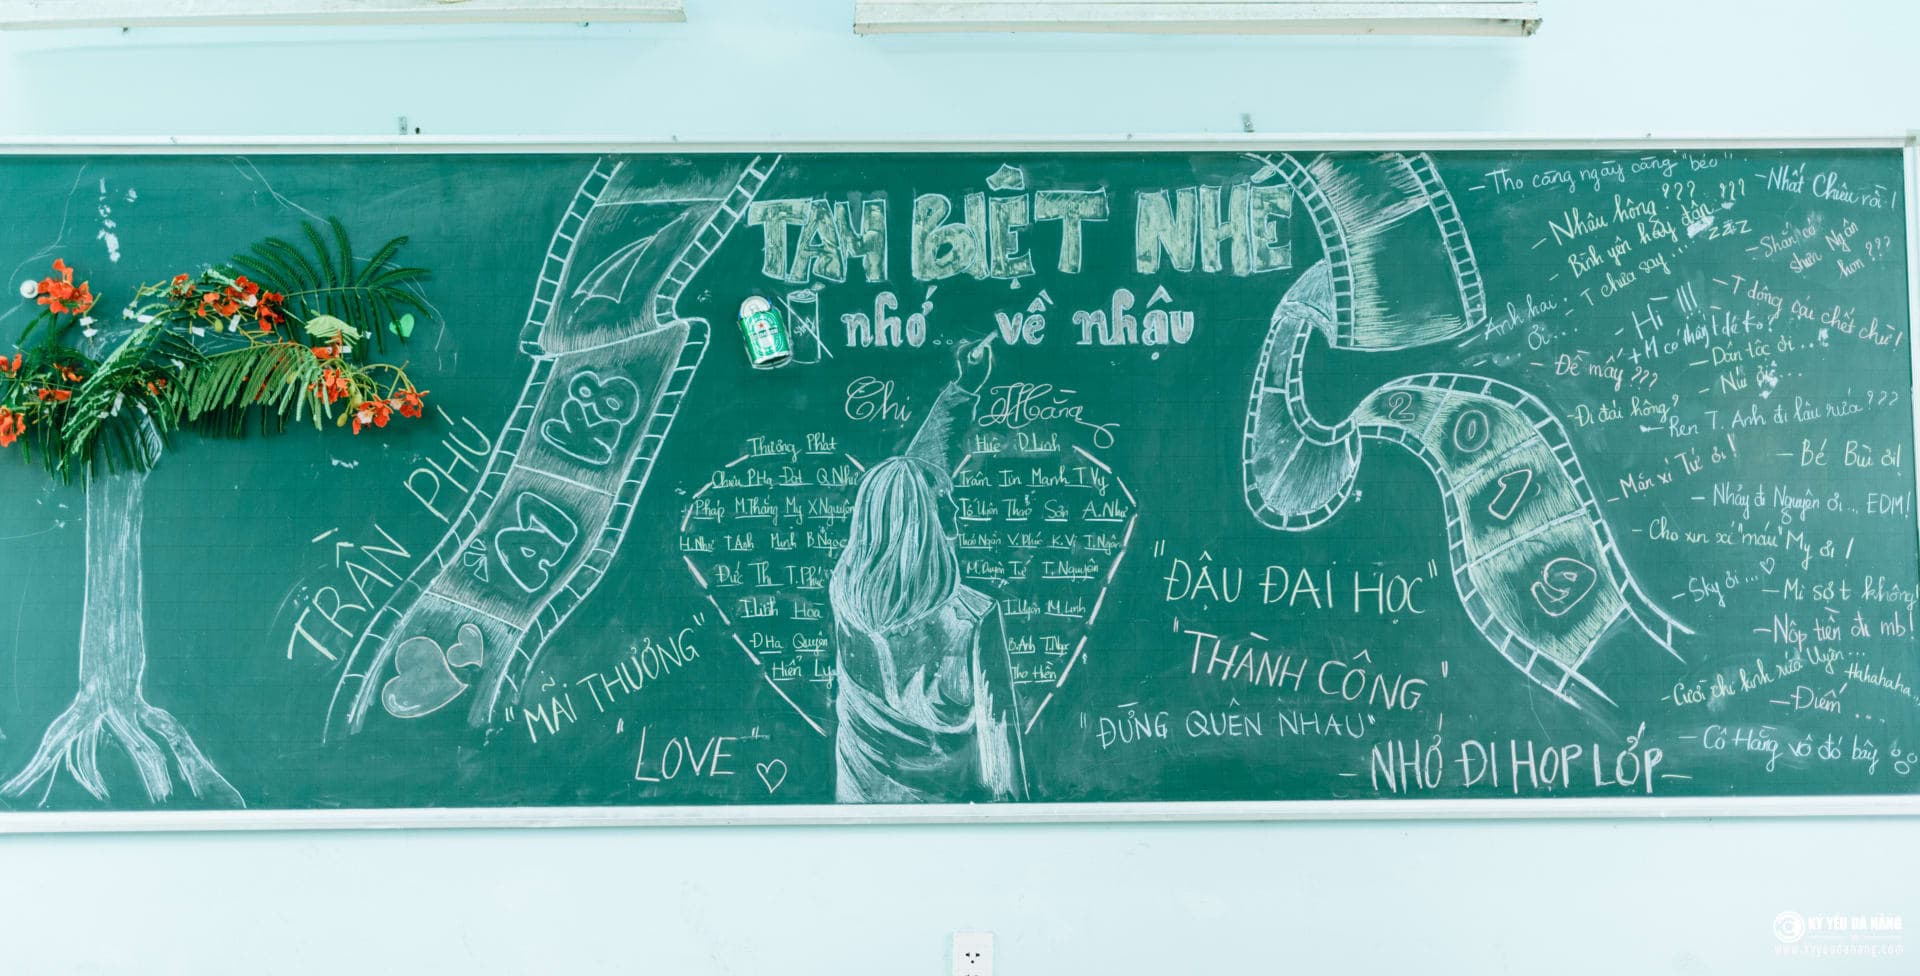 TẠM BIỆT NHÉ
nhớ... về nhậu
Chị Hằng
TRẦN PHÚ
K8
A1
2019
Thưởng Phát
Chiêu P.Hạ Đạt Q.Như
Pháp M.Thắng My X.Nguyên
H.Như T.Anh Minh B.Ngọc
Đức Thi T.Phúc
T.Linh Hòa
D.Hạ Quyên
Hiển Ly
Huệ D.Linh
Trâm Tín Mạnh T.Vy
Tố Uyên Thảo Sơn A.Như
Thảo Ngân V.Phúc K.Vi T.Ngân
M.Duyên T.Nguyên
T.Uyên M.Linh
B.Anh T.Ngọc
Thọ Hiền
"MÃI THƯƠNG"
"LOVE"
"ĐẬU ĐẠI HỌC"
"THÀNH CÔNG"
"ĐỪNG QUÊN NHAU"
- NHỚ ĐI HỌP LỚP -
- Thọ càng ngày càng "béo"
- Nhất Chiêu rồi!
- Nhậu hông ??? ???
- Bình yên hãy đận... ZZZ
- Ngân hơn ???
- Anh hai ơi... T chưa say...
- Hì !!!
- T dông cái chết chừ!
- Đề mấy ???
+ M có thấy T dé ko?
- Dân tộc ơi...
- Núi ơi...
- Đi đái hông?
- Ren T. Anh đi lâu rứa ???
- Mắn xí Tứ ơi!
- Bé Bùi ơi!
- Nhảy đi Nguyên ơi... EDM!
- Cho xin xí "máu" My ơi!
- Sky ơi...
- Mi sợ t không!
- Nộp tiền đi mb!
- Cười chi kinh rứa Uyên... Hahahaha...
- Điếm...
- Cô Hằng vô đó bây
KỶ YẾU ĐÀ NẴNG
www.kyyeudanang.com